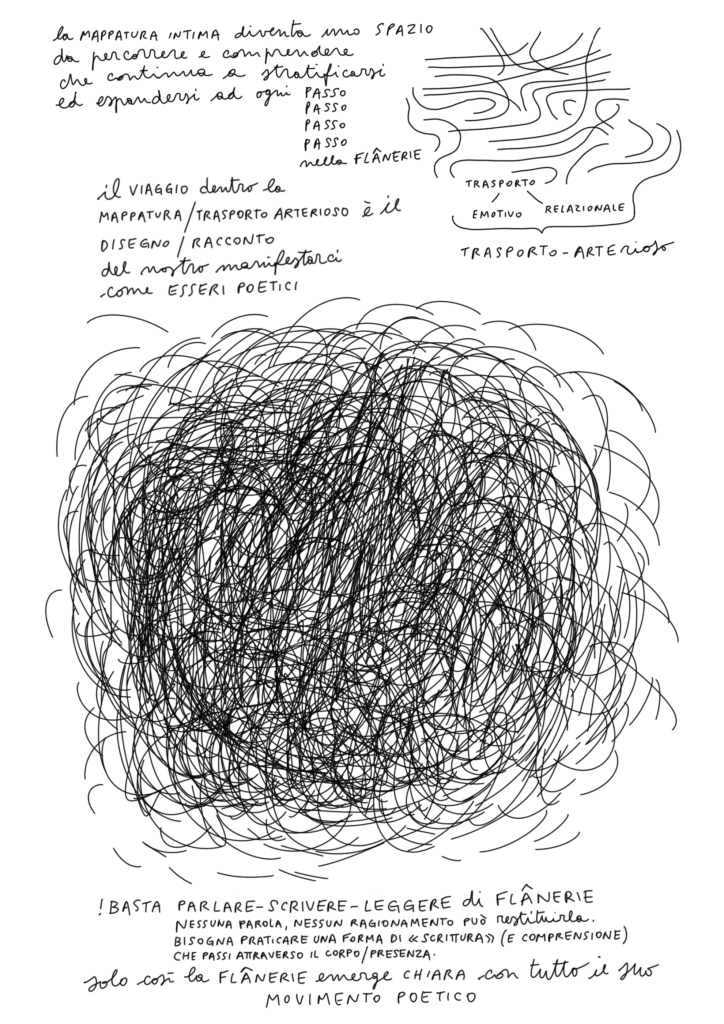 la MAPPATURA INTIMA diventa uno SPAZIO
da percorrere e comprendere
che continua a stratificarsi
ed espandersi ad ogni PASSO
PASSO
PASSO
PASSO
nella FLÂNERIE
TRASPORTO
EMOTIVO RELAZIONALE
TRASPORTO-ARTERIOSO
il VIAGGIO dentro la
MAPPATURA/TRASPORTO ARTERIOSO è il
DISEGNO/RACCONTO
del nostro manifestarci
come ESSERI POETICI
! BASTA PARLARE-SCRIVERE-LEGGERE di FLÂNERIE
NESSUNA PAROLA, NESSUN RAGIONAMENTO PUÒ restituirla.
BISOGNA PRATICARE UNA FORMA DI «SCRITTURA» (E COMPRENSIONE)
CHE PASSI ATTRAVERSO IL CORPO/PRESENZA.
solo così la FLÂNERIE emerge CHIARA con tutto il suo
MOVIMENTO POETICO